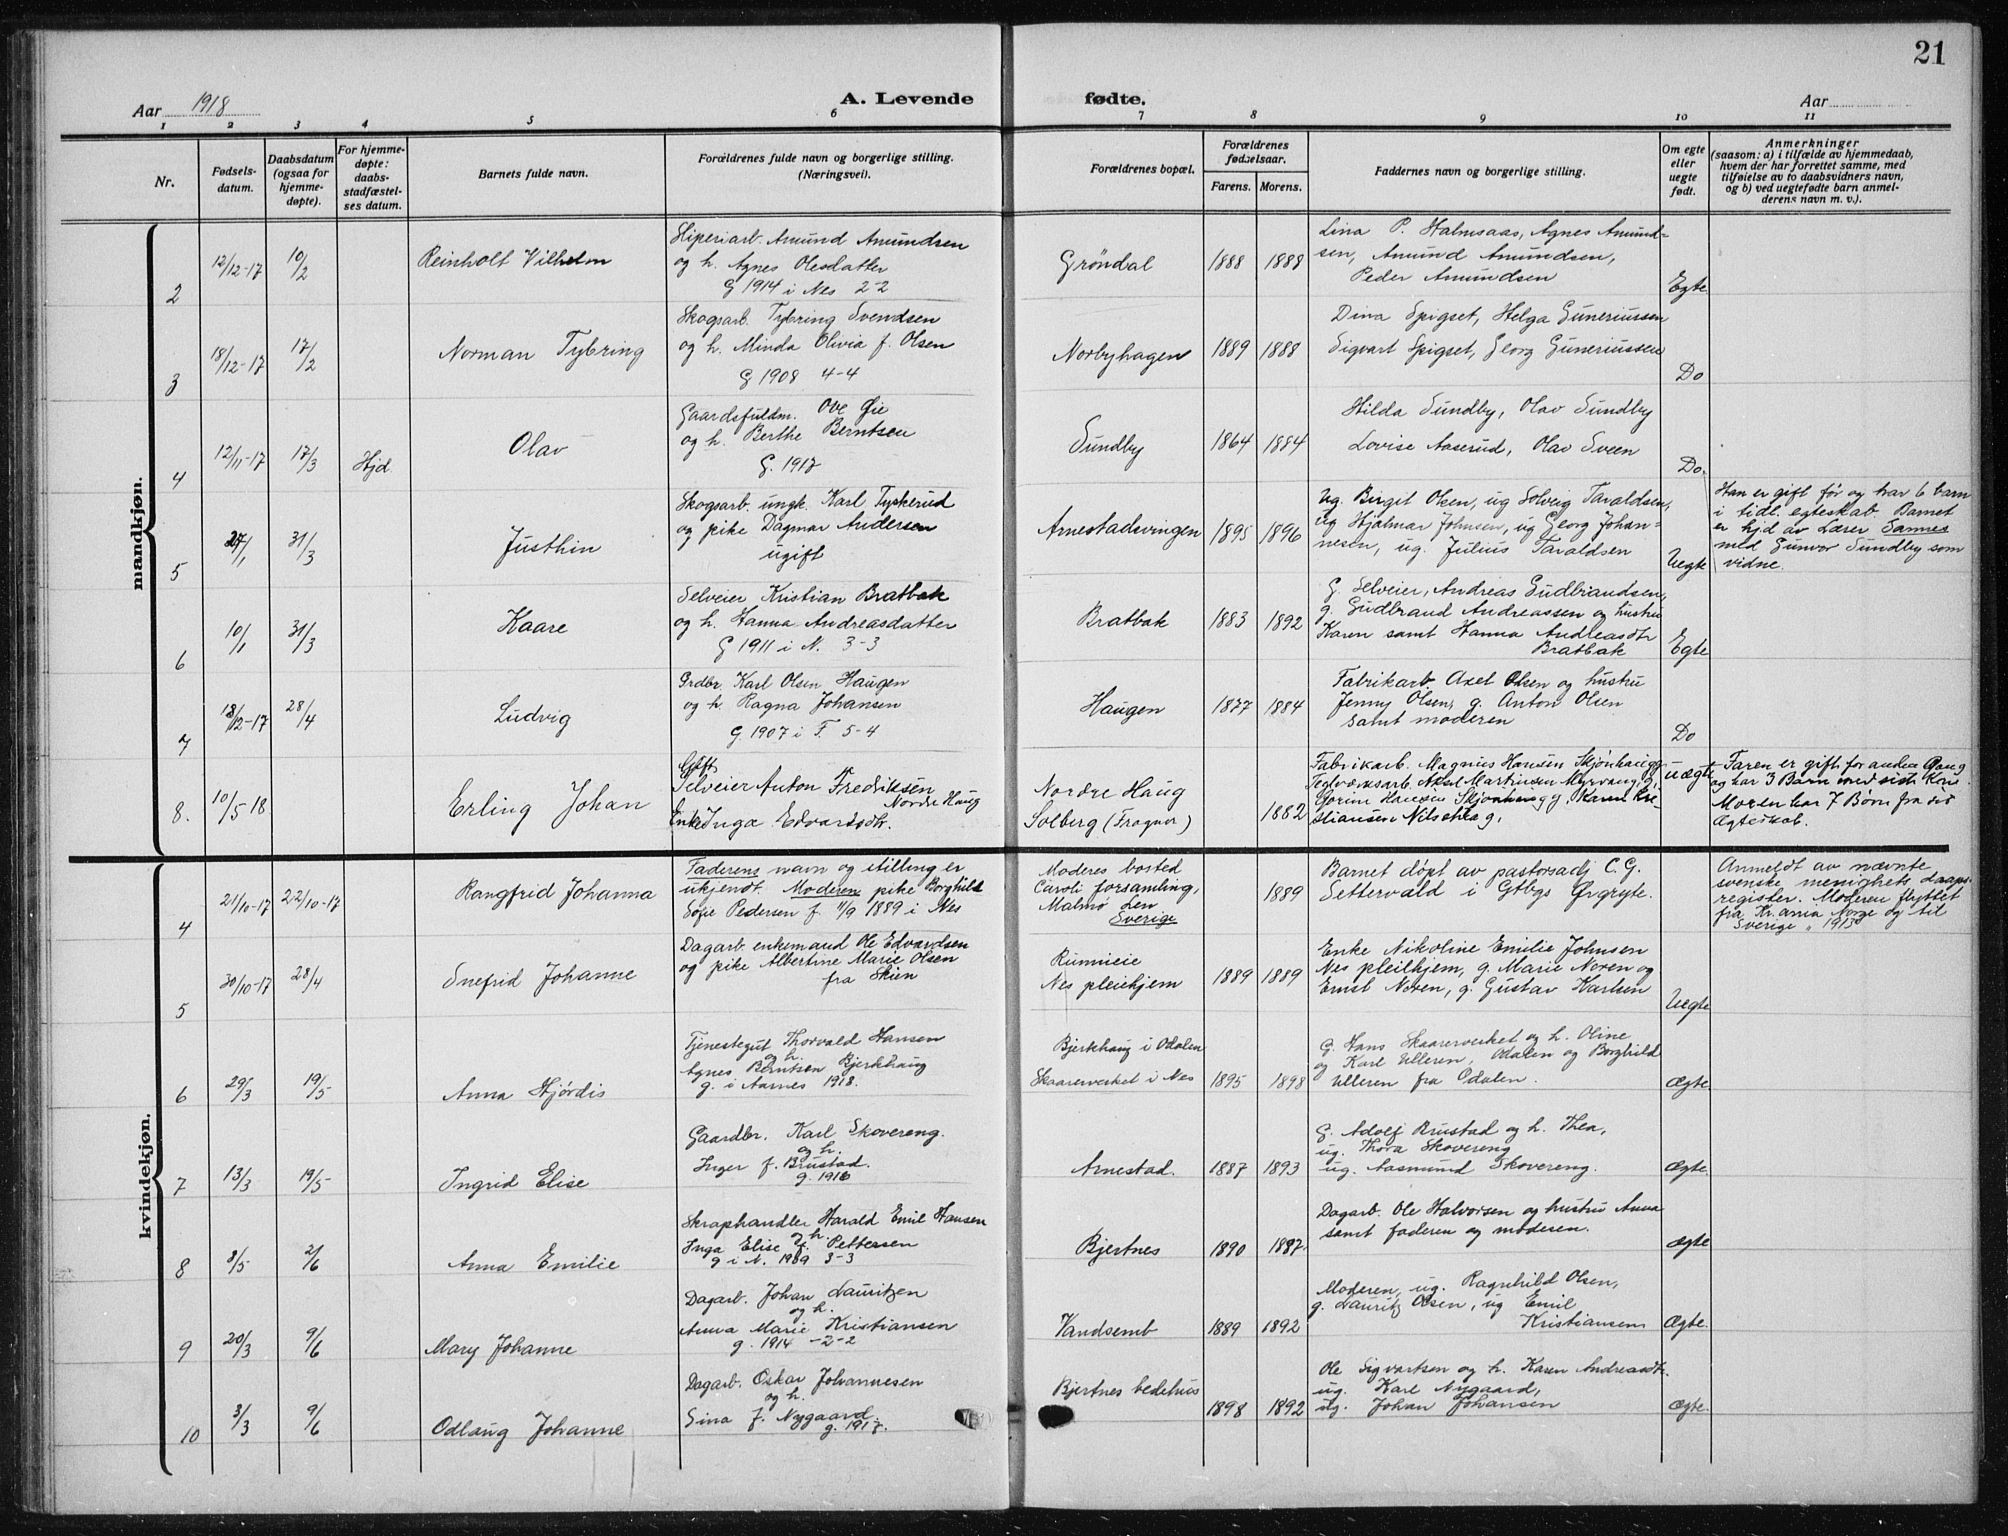 21
Aar 1918
A. Levende fødte.
Aar
1 2 3 4 5 6 7 8 9 10 11
Nr.
Fødsels-
datum.
Daabsdatum
(ogsaa for
hjemme-
døpte).
For hjemme-
døpte:
daabs-
stadfæstel-
ses datum.
Barnets fulde navn.
Forældrenes fulde navn og borgerlige stilling.
(Næringsvei).
Forældrenes bopæl.
Forældrenes
fødselsaar.
Farens. Morens.
Faddernes navn og borgerlige stilling.
Om egte
eller
uegte
født.
Anmerkninger
(saasom: a) i tilfælde av hjemmedaab,
hvem der har forrettet samme, med
tilføielse av to daabsvidners navn,
og b) ved uegtefødte barn anmel-
derens navn m. v.).
mandkjøn.
2
12/12-17
10/2
Reinholt Vilhelm
Amund Amundsen
og h. Agnes Olesdatter
G 1914 i Nes 2-2
Grøndal
1888 1888
Lina P. Halmsaas, Agnes Amund-
sen, Amund Amundsen,
Peder Amundsen
Egte
3
18/12-17
17/2
Norman Tybring
Skogsarb. Tybring Svendsen
og h. Minda Olivia f. Olsen
G 1908 4-4
Norbyhagen
1889 1888
Dina Spigset, Helga Guneriussen
Sigvart Spigset, Georg Guneriussen
Do
4
12/11-17
17/3
Hjd
Olav
Gaardsfuldm. Ove Øie
og h. Berthe Berntsen
G. 1917
Sundby
1864 1884
Hilda Sundby, Olav Sundby
Lovise Aaserud, Olav Sveen
Do.
Han er gift før og har 6 barn
i tidl. egteskab. Barnet
er hjd av Lærer Sannes
med Gunvor Sundby som
vidne.
5
27/1
31/3
Justhin
Skogsarb. ungk. Karl Tyskerud
og pike Dagmar Andersen
ugift
Arnestadsvingen
1895 1896
Ug. Birget Olsen, ug Solveig Taraldsen,
ug Hjalmar Johnsen, ug Georg Johan-
nesen, ug. Julius Taraldsen
Uegte
6
10/1
31/3
Kaare
Selveier Kristian Bratbak
og h. Hanna Andreasdatter
G 1911 i N. 3-3
Bratbak
1883 1892
G. Selveier, Andreas Gudbrandsen,
g. Gudbrand Andreassen og hustru
Karen samt Hanna Andreasdtr
Bratbak
Egte
7
18/12-17
28/4
Ludvig
Grdbr. Karl Olsen Haugen
og h. Ragna Johansen
G. 1907 i F. 5-4
Haugen
1877 1884
Fabrikarb Axel Olsen og hustru
Jenny Olsen, g. Anton Olsen
samt moderen
Do
8.
10/5 18
Erling Johan
Gift
Selveier Anton Fredriksen
Nordre Haug
Enke Inga Edvardsdtr.
Nordre Haug
Solberg (Frogner)
1882
Fabrikarb. Magnus Hansen Skjønhaug g,
Teglværksarb. Aksel Martinsen Myrvang g,
Hansen Skjønhaug g,
stiansen Nilshaug.
uægte
Faren er gift for anden Gang
og har 3 Barn med sist Kone.
Moren har 7 Børn fra sit
Ægteskab.
kvindekjøn.
4
21/10-17
22/10-17
Rangfrid Johanna
Faderens navn og stilling er
ukjendt. Moderen pike Borghild
Sofie Pedersen f. 11/9 1889 i Nes
Moderes bosted
Caroli forsamling,
Malmø Len
Sverige
1889
Barnet døpt av pastorsadj C. G.
Settervald i Gtbgs Ørgryte.
Anmeldt av nævnte
svenske menighets daaps-
register. Moderen flyttet
fra Kr.ania Norge og til
Sverige 1915
5
30/10-17
28/4
Snefrid Johanne
Dagarb. enkemand Ole Edvardsen
og pike Albertine Marie Olsen
fra Skien
Runnieie
Nes pleiehjem
1889 1889
Enke Nikoline Emilie Johnsen
Nes pleilhjem, g. Marie Noren og
Ernst Noren, g. Gustav Karlsen
Uegte
6
29/3
19/5
Anna Hjørdis
Tjenestegut Thorvald Hansen
og h.
Agnes Berntsen Bjerkhaug
g. i Aarnes 1918.
Bjerkhaug i Odalen
Skaarerverket i Nes
1895 1898
G. Hans Skaarerverket og h. Oline
og Karl Ulleren, Odalen og Borghild
Ulleren fra Odalen.
Ægte
7
13/3
19/5
Ingrid Elise
Gaardbr. Karl Skovereng.
og h.
Inger f. Brustad.
g. 1916
Arnestad.
1887 1893
G. Adolf Brustad og h. Thea,
ug. Thora Skovereng
ug. Aasmund Skovereng.
Ægte.
8
8/5
2/6
Anna Emilie
Skraphandler Harald Emil Hansen
og h.
Inga Elise f. Pettersen
g i N. 1909 3-3
Bjertnes
1890 1887.
Dagarb. Ole Halvorsen og hustru Anna
samt faderen og moderen.
Ægte
9
20/3
9/6
Mary Johanne
Dagarb. Johan Lauritzen
og h.
Anna Marie Kristiansen
g. 1914 -2-2
Vandsemb
1889 1892
Moderen, ug. Ragnhild Olsen,
g. Lauritz Olsen, ug Emil
Kristiansen
Ægte.
10
3/3
9/6
Odlaug Johanne
Dagarb. Oskar Johannesen
og h.
Gina f. Nygaard.
g. 1917.
Bjertnes bedehus
1898 1892
Ole Sigvartsen og h. Karen Andreasdtr.
ug. Karl Nygaard,
ug. Johan Johansen
Ægte.